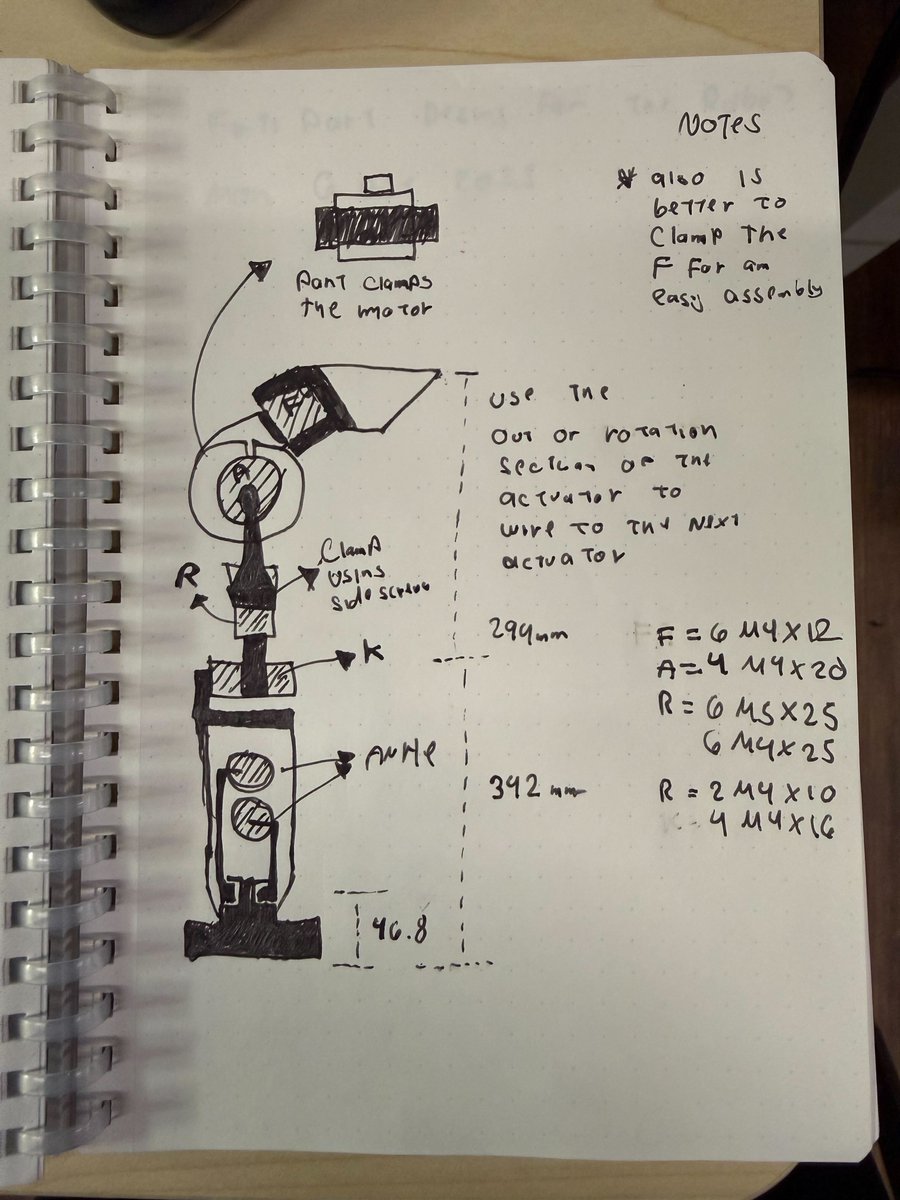 NOTES
* also is
better to
Clamp the
F for an
easy assembly
Part Clamps
the motor
F
use the
out of rotation
section of the
actuator to
wire to the next
actuator
A
Clamp
using
side screw
R
K
294mm
F = 6 M4X12
A = 4 M4X20
R = 6 M5X25
6 M4X25
Ankle
342 mm
R = 2 M4X10
4 M4X16
46.8